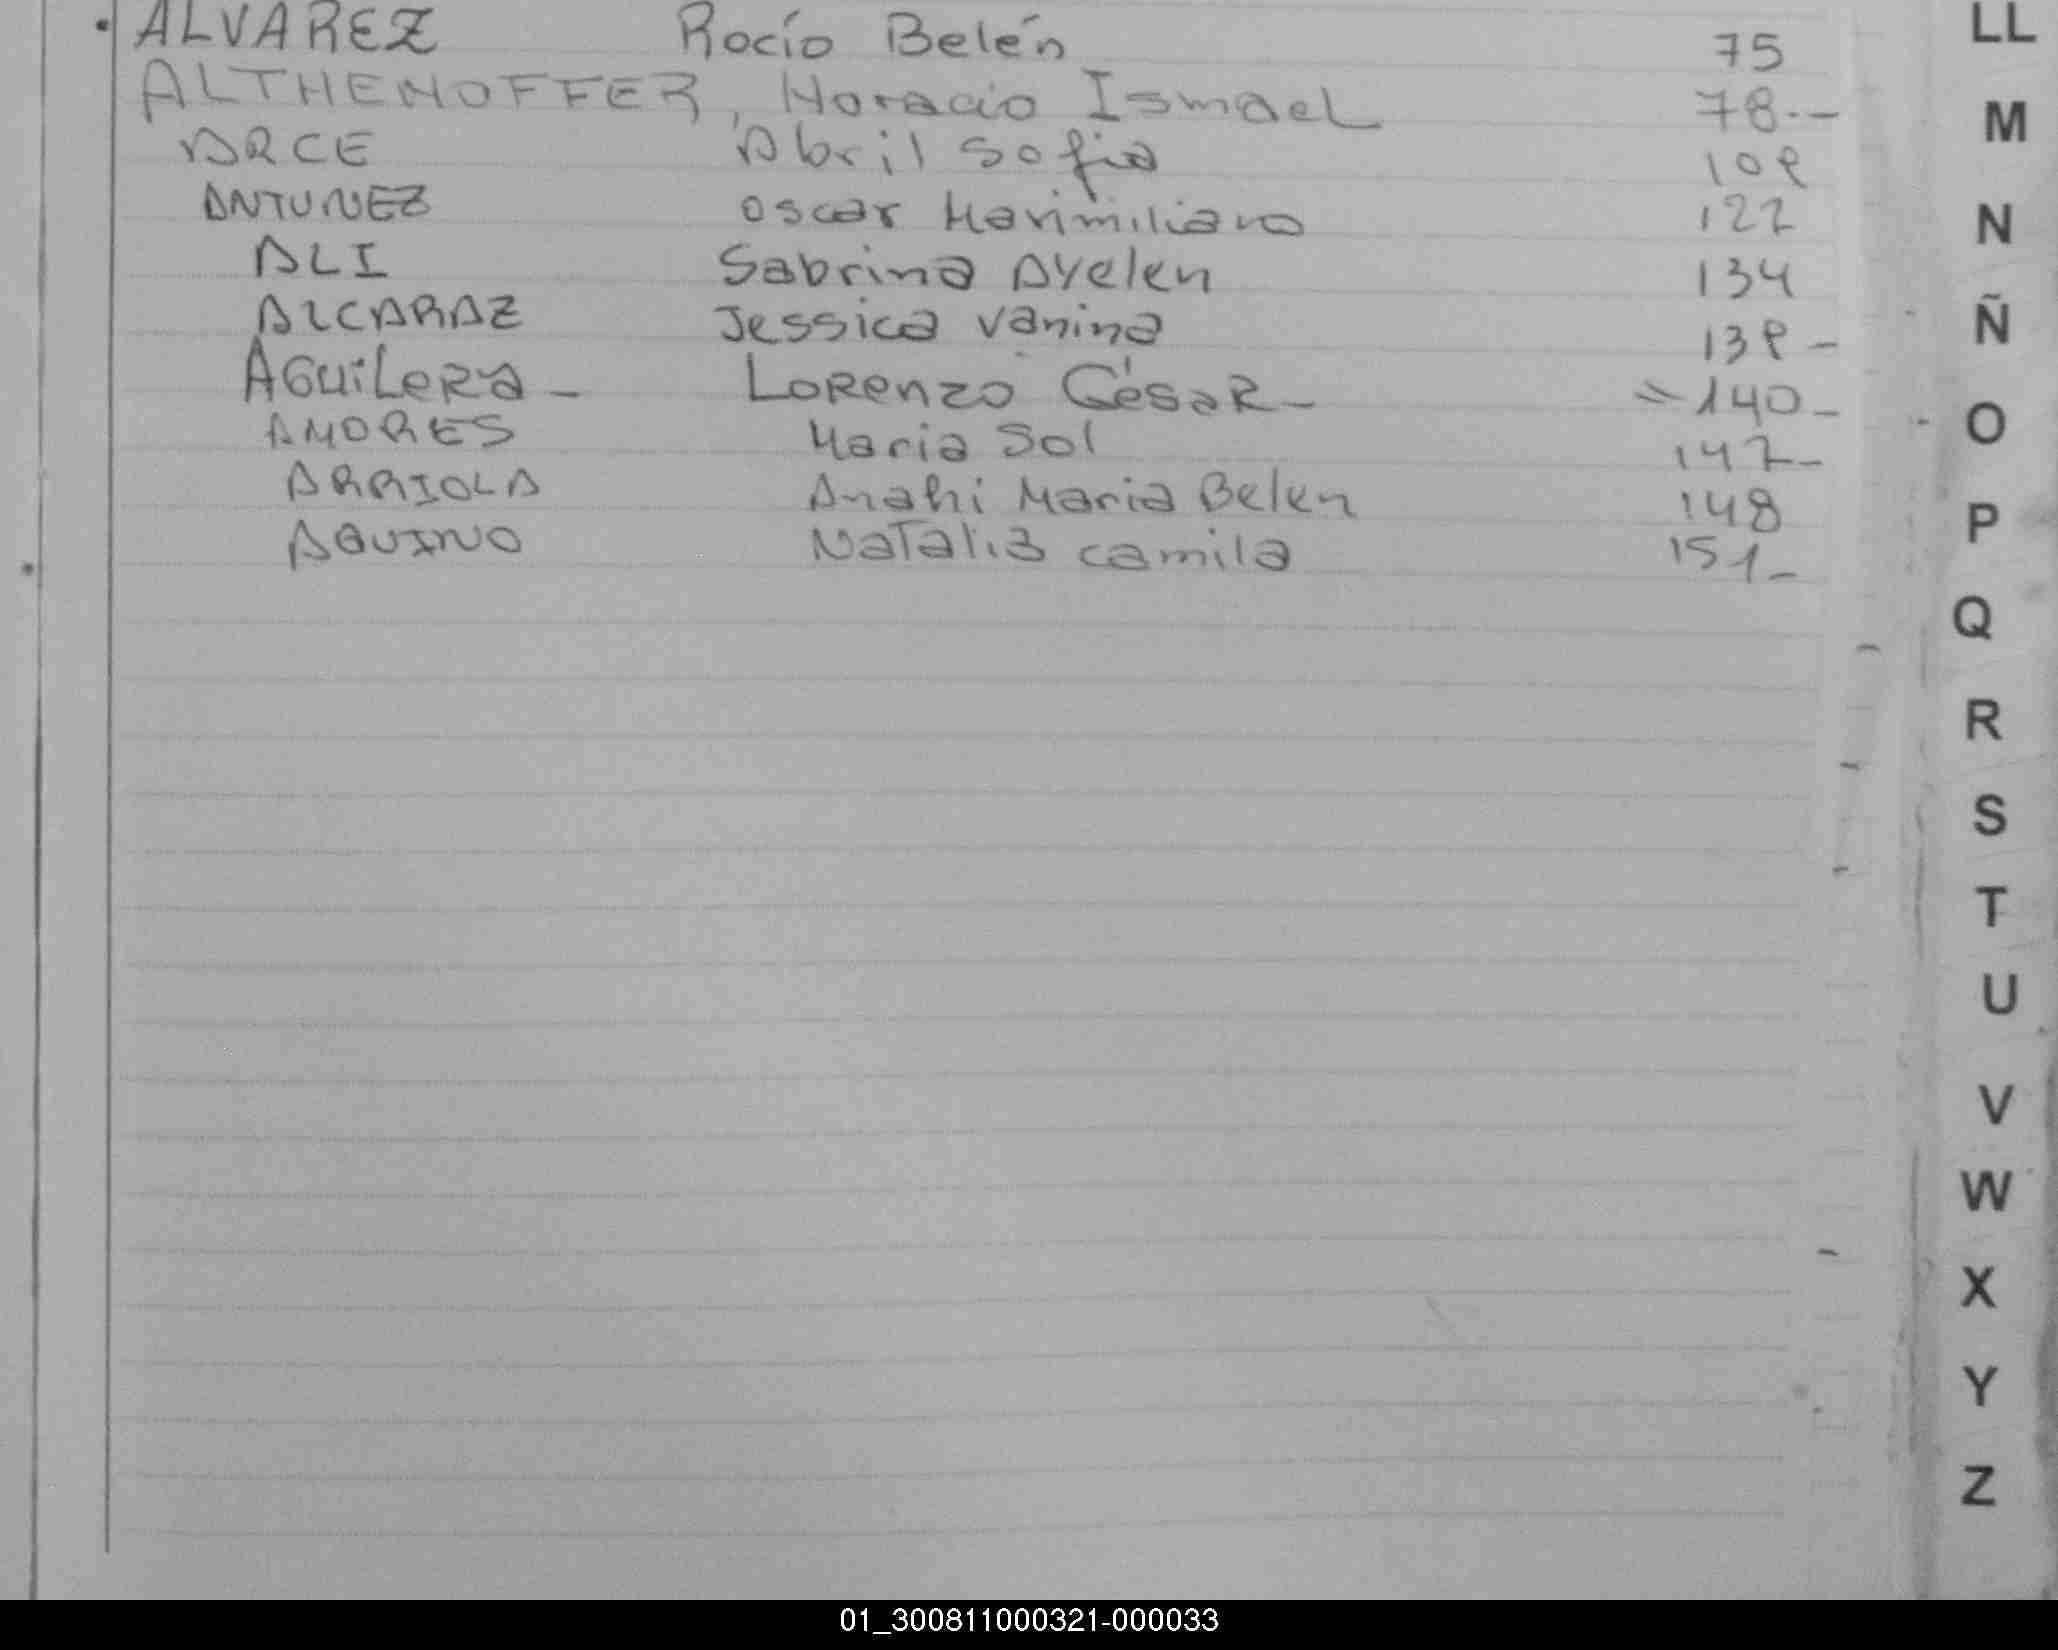 ALVAREZ Rocío Belén 75
ALTHENOFFER, Horacio Ismael 78.-
ARCE Abril Sofia 109
ANTUNEZ Oscar Maximiliano 122
ALI Sabrina Ayelen 134
ALCARAZ Jessica Vanina 139-
AGUiLERA- LORENZO CésaR- 140-
AMORES Maria Sol 147-
ARRIOLA Anahi Maria Belen 148
AQUINO Natalia camila 151-
LL
M
N
Ñ
O
P
Q
R
S
T
U
V
W
X
Y
Z
01_300811000321-000033